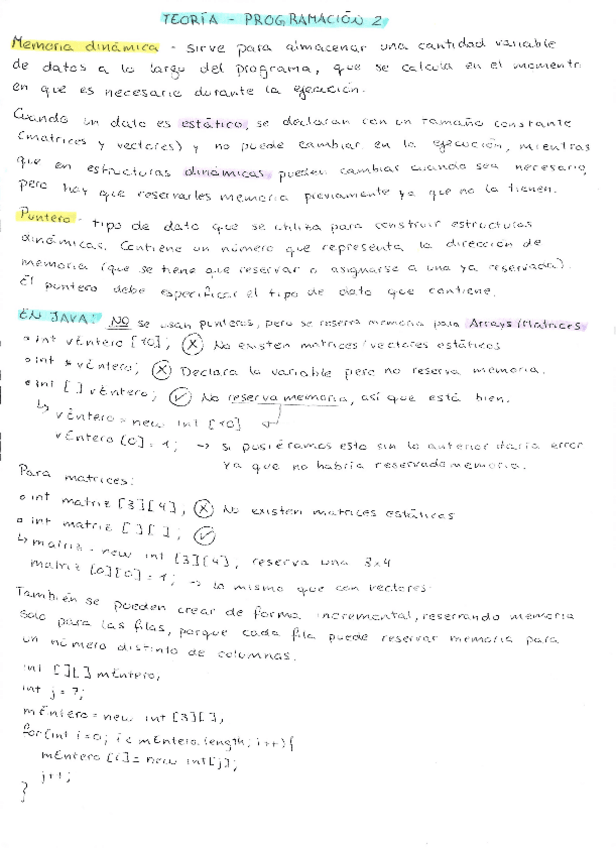 TEORÍA - PROGRAMACIÓN 2
Memoria dinámica - sirve para almacenar una cantidad variable
de datos a lo largo del programa, que se calcula en el momento
en que es necesario durante la ejecución.
Cuando un dato es estático, se declaran con un tamaño constante
(matrices y vectores) y no puede cambiar en la ejecución, mientras
que en estructuras dinámicas pueden cambiar cuando sea necesario,
pero hay que reservarles memoria previamente ya que no la tienen.
Puntero - tipo de dato que se utiliza para construir estructuras
dinámicas. Contiene un número que representa la dirección de
memoria (que se tiene que reservar o asignarse a una ya reservada).
El puntero debe especificar el tipo de dato que contiene.
EN JAVA: NO se usan punteros, pero se reserva memoria para Arrays/Matrices
int vEntero [10]; No existen matrices/vectores estáticos
int * vEntero; Declara la variable pero no reserva memoria.
int [ ] vEntero; No reserva memoria, así que está bien.
vEntero = new int [10]
vEntero [0] = 1; → si pusiéramos esto sin lo anterior daría error
ya que no habría reservado memoria.
Para matrices:
int matriz [3][4], No existen matrices estáticas
int matriz [ ][ ];
matriz = new int [3][4], reserva una 3x4
matriz [0][0] = 1; → lo mismo que con vectores
También se pueden crear de forma incremental, reservando memoria
solo para las filas, porque cada fila puede reservar memoria para
un número distinto de columnas.
int [ ][ ] mEntero;
int j = ?;
mEntero = new int [3][ ],
for (int i=0; i< mEntero.length; i++) {
mEntero [i] = new int[j];
j++;
}